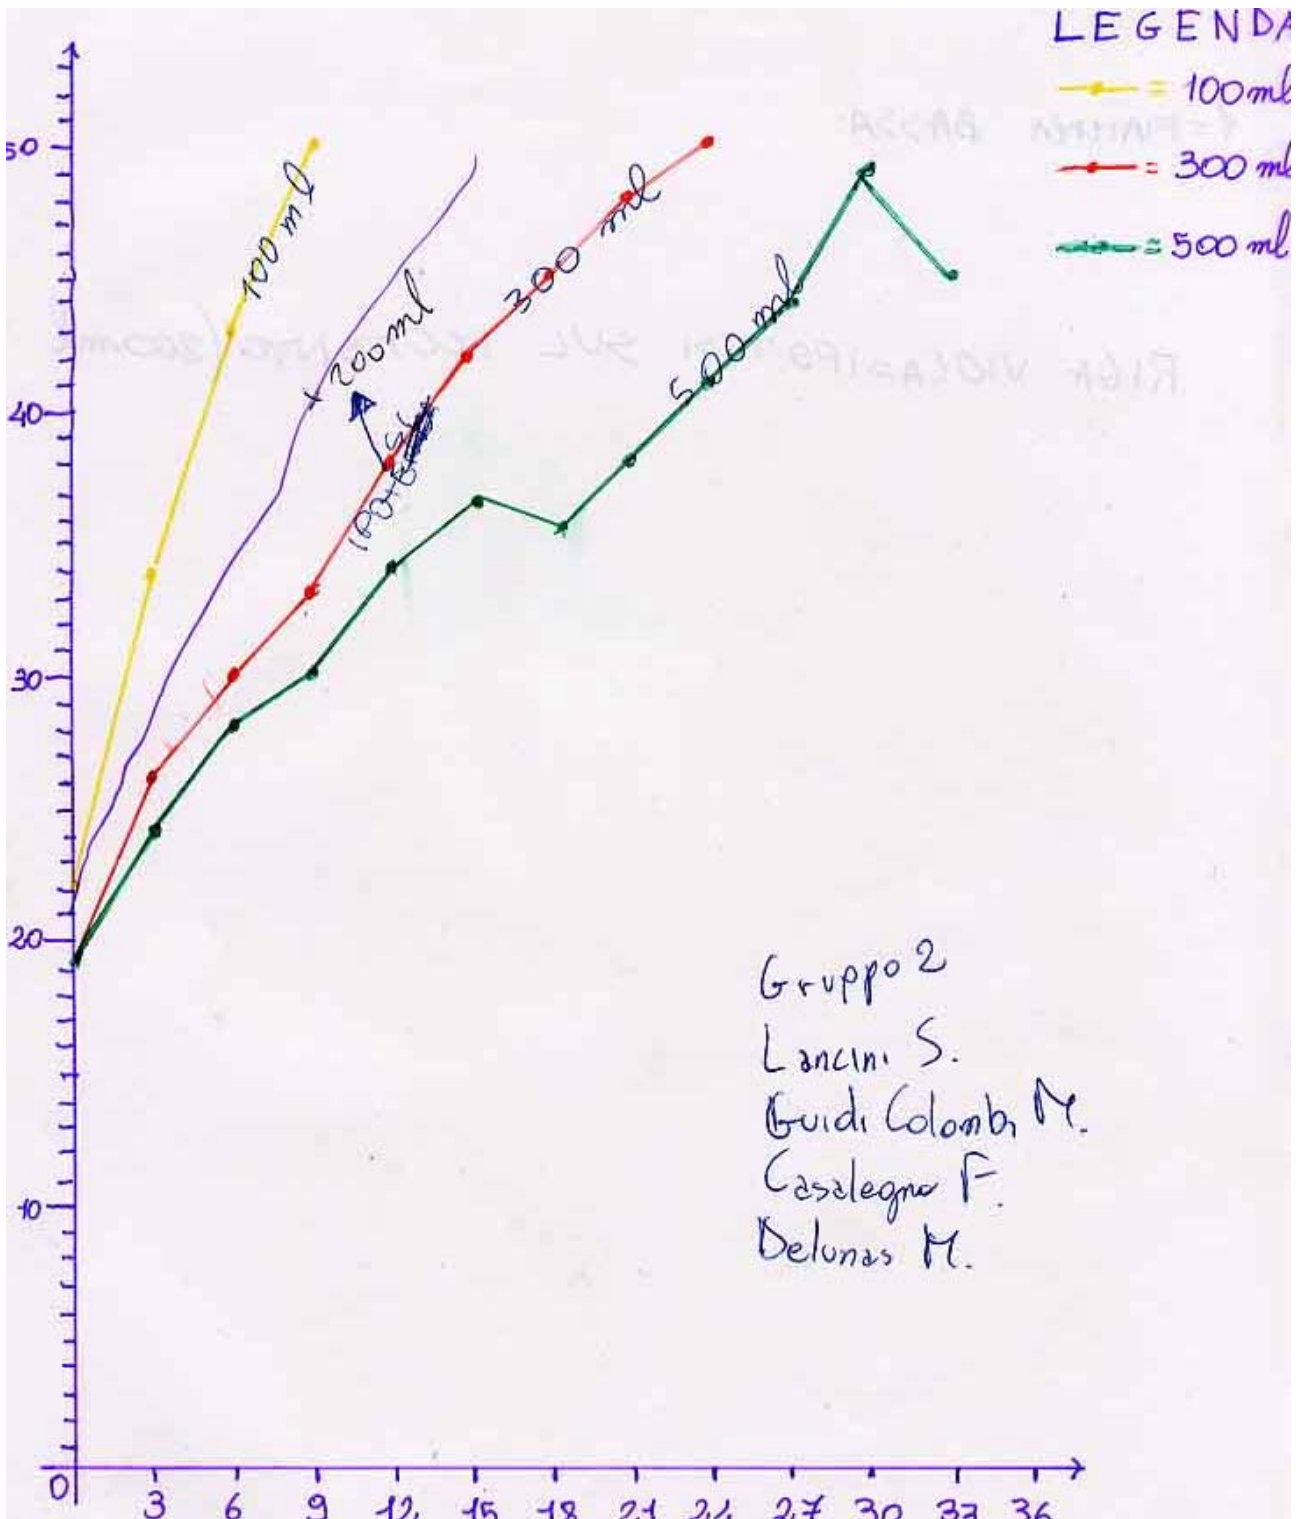 LEGENDA
= 100 ml
= 300 ml
= 500 ml
50
100 ml
200 ml
300 ml
500 ml
40
30
20
Gruppo 2
Lancini S.
Guidi Colombi M.
Casalegno F.
Delunas M.
10
0 3 6 9 12 15 18 21 24 27 30 33 36